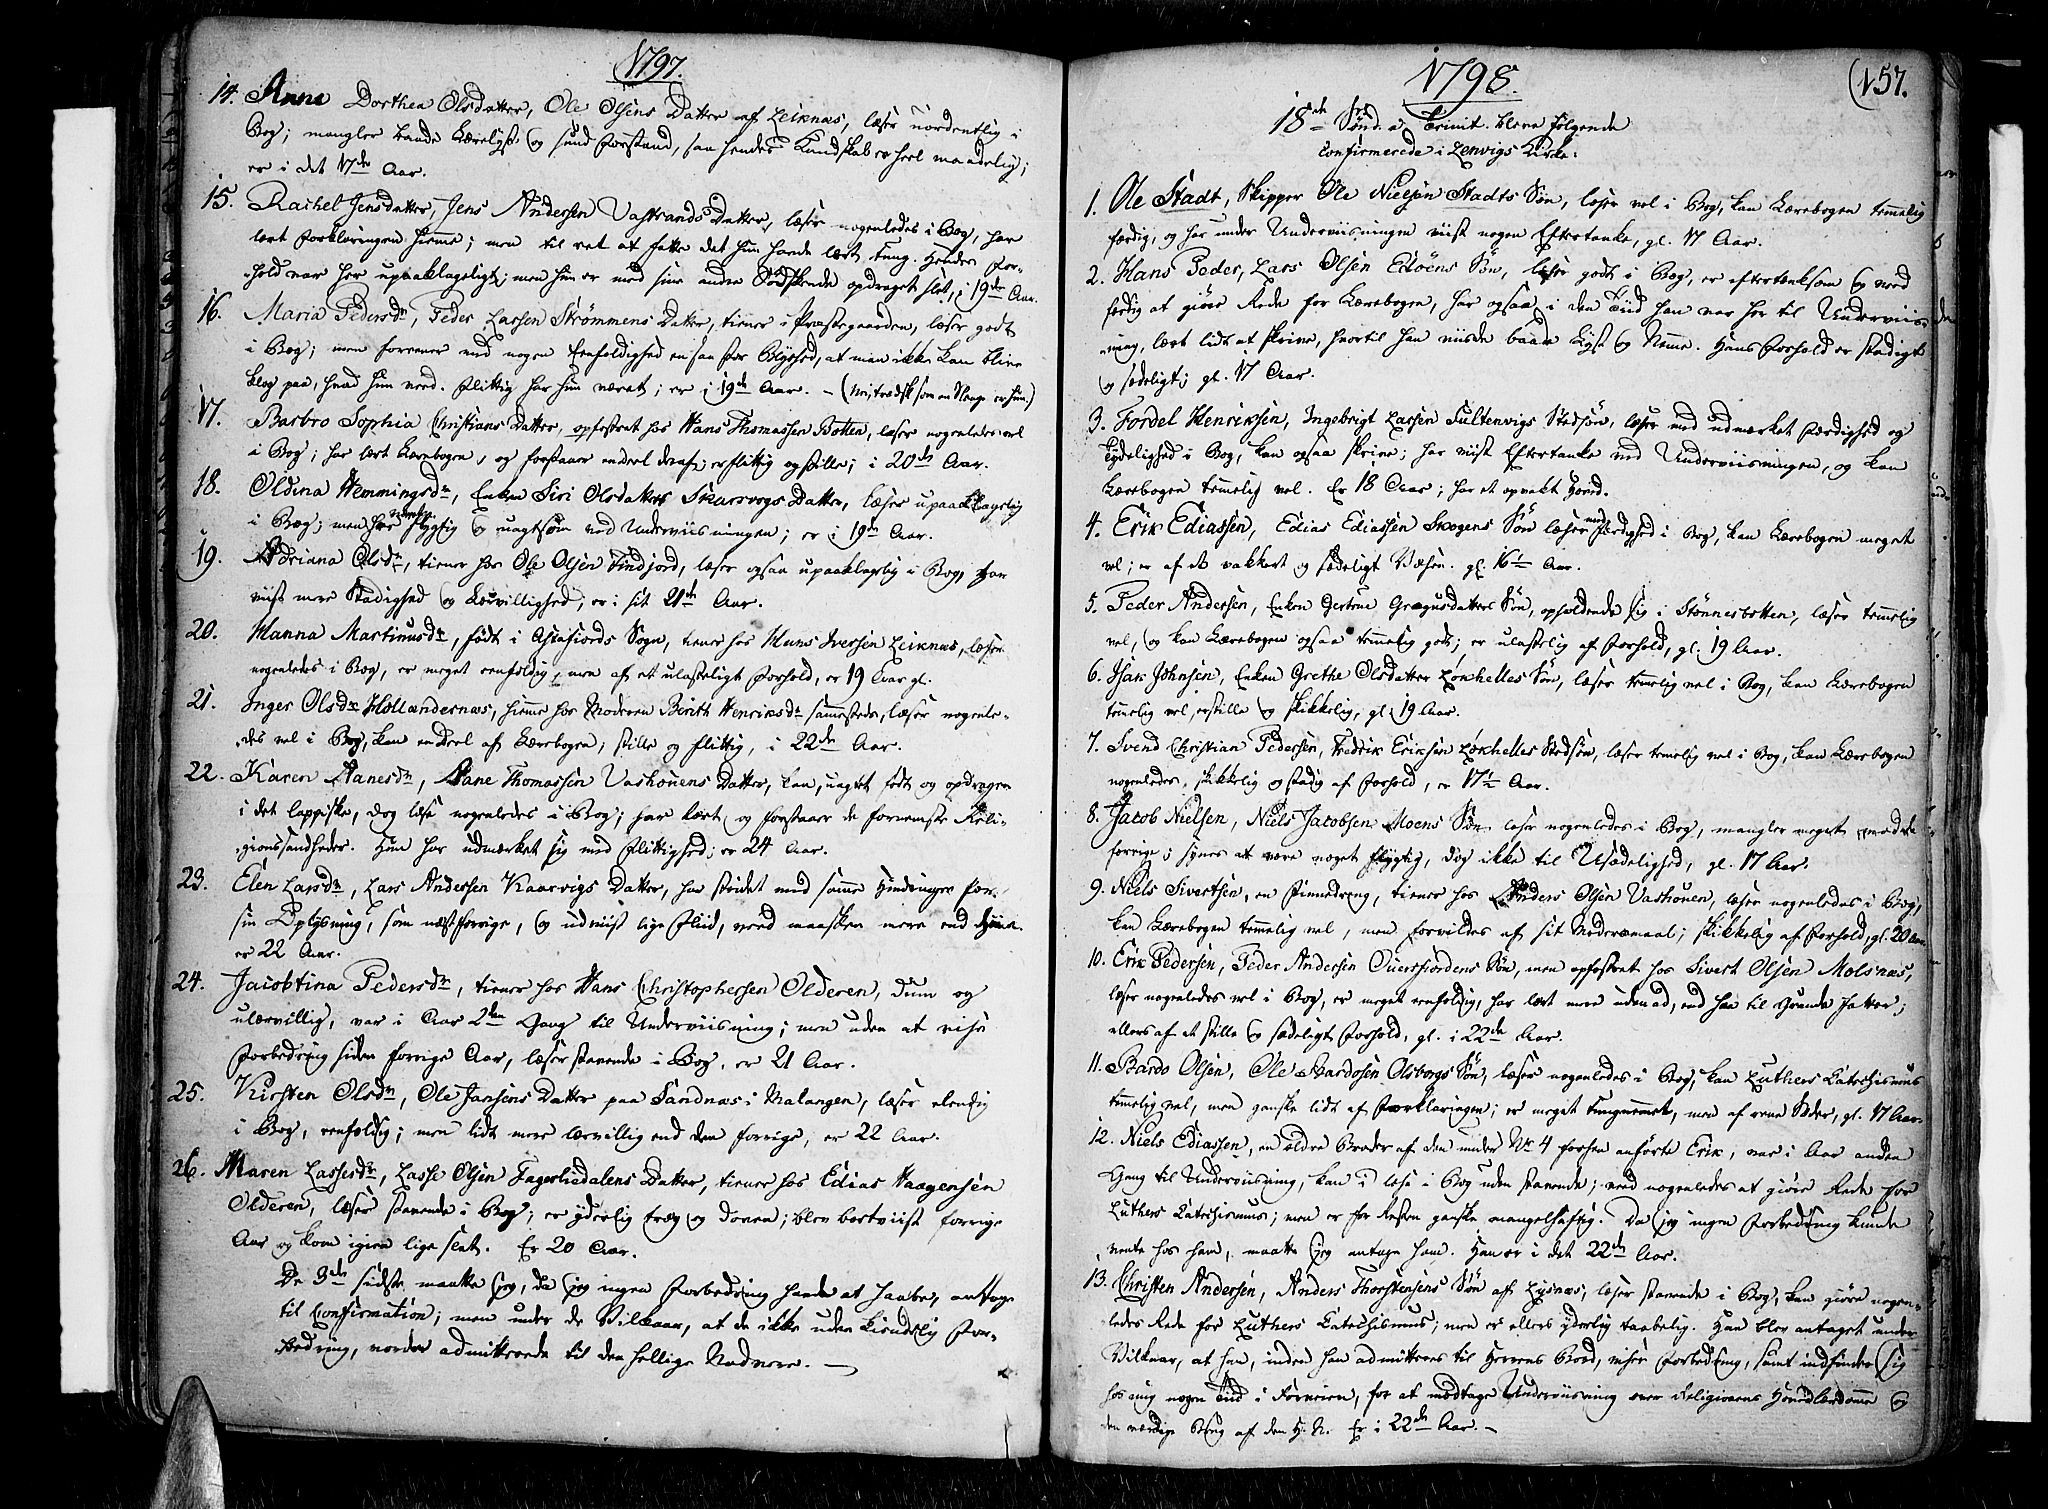 1797.
14. Anne Dorthea Olsdatter, Ole Olsens Datter af Leiknæs, læser uordentlig i
Bog; mangler baade Lærelyst og sund Forstand, saa hendes Kundskab er heel maadelig;
er i det 17de Aar.
15. Rachel Jensdatter, Jens Andersen Vastrands Datter, læser nogenledes i Bog, har
lært Forklaringen hieme; men til ret at fatte det hun havde lært, tung. Hendes For-
hold var her upaaklageligt; men hun er med sine andre Sødskende opdraget slet, i 19de Aar.
16. Maria Pedersdr, Peder Larsen Strømmens Datter, tiener i Præstegaarden, læser godt
i Bog; men forener med nogen Eenfoldighed en saa stor Blyehed, at man ikke kan blive
klog paa, hvad hun veed. Flittig har hun været; er i 19de Aar. – (Nei, trædsk som en Slange er hun.)
17. Barbro Sophia Christians Datter, opfostret hos Hans Thomassen Botten, læser nogenledes vel
i Bog; har lært Lærebogen, og forstaaer endeel deraf; er flittig og stille; i 20de Aar.
18. Oldina Hemmingsdr, Enken Siri Olsdatters Skarsvogs Datter, læser upaaklagelig
i Bog; men har været flygtig og uagtsom ved Underviisningen; er i 19de Aar.
19. Adriana Olsdr, tiener hos Ole Olsen Findjord, læser ogsaa upaaklagelig i Bog, har
viist mere Stadighed og Lærvillighed, er i sit 21de Aar.
20. Hanna Martinusdr, født i Astafiords Sogn, tiener hos Hans Iversen Leiknæs, læser
nogenledes i Bog, er meget eenfoldig, men af et ulasteligt Forhold, er 19 Aar gl.
21. Inger Olsdr Hollendernæs, hieme hos Moderen Berith Henriksdr sammesteds, læser nogenle-
des vel i Bog, kan en Deel af Lærebogen; stille og flittig, i 22de Aar.
22. Karen Aanesdr, Aane Thomassen Vashouens Datter, kan, uagtet født og opdragen
i det lappiske, dog læse nogenledes i Bog; har lært og forstaaer de fornemste Reli-
gionssandheder. Hun har udmærket sig med Flittighed; er 24 Aar.
23. Elen Larsdr, Lars Andersen Kaarvigs Datter, har stridet med samme Hindringer for
sin Oplysning, som næstforrige, og udviist lige Fliid, veed maaskee mere end hiine.
er 22 Aar.
24. Jacobtina Pedersdr, tiener hos Hans Christophersen Olderen, dum og
ulærvillig, var i Aar 2den Gang til Underviisning; men uden at vise
Forbedring siden forrige Aar, læser stavende i Bog, er 21 Aar.
25. Kirsten Olsdr, Ole Jansens Datter paa Sandnæs i Malangen, læser elendig
i Bog, eenfoldig; men lidt mere lærvillig end den forrige, er 22 Aar.
26. Maren Lassesdr, Lasse Olsen Fagerliedalens Datter, tiener hos Edias Haagensen
Olderen, læser stavende i Bog; er yderlig træg og doven; blev bortviist forrige
Aar og kom igien lige slet. Er 20 Aar.
De 3de sidste maatte jeg, da jeg ingen Forbedring havde at haabe, antage
til Confirmation; men under de Vilkaar, at de ikke uden kiendelig For-
bedring, vorder admitterede til den hellige Nadvere. –
1798.
(157.
18de Sønd. a Trinit. bleve følgende
Confirmerede i Lenvigs Kirke:
1. Ole Stadt, Skipper Ole Nielsen Stadts Søn, læser vel i Bog, kan Lærebogen temmelig
færdig, og har under Underviisningen viist nogen Eftertanke, gl. 17 Aar.
2. Hans Peder, Lars Olsen Edøens Søn, læser godt i Bog, er eftertænksom og med
færdig at giøre Rede for Lærebogen, har ogsaa i den Tiid han var her til Underviis-
ning, lært lidt at skrive, hvortil han viiste baade Lyst og Nemme. Hans Forhold er stadigt
og sædeligt; gl. 17 Aar.
3. Fordel Henriksen, Ingebrigt Larsen Sultenvigs Stedsøn, læser med udmærket Færdighed og
Tydelighed i Bog, kan ogsaa skrive; har viist Eftertanke ved Underviisningen, og kan
Lærebogen temmelig vel. Er 18 Aar; har et opvakt Hoved.
4. Erik Ediassen, Edias Ediassen Skogens Søn læser med Færdighed i Bog, kan Lærebogen meget
vel; er af et vakkert og sædeligt Væsen. gl. 16 Aar.
5. Peder Andersen, Enken Gertrue Gregusdatters Søn, opholdende sig i Stønnesbotten, læser temmelig
vel, og kan Lærebogen ogsaa temmelig godt; er ulastelig af Forhold, gl. 19 Aar.
6. Isak Johnsen, Enken Grethe Olsdatter Løkhelles Søn, læser temmelig vel i Bog, kan Lærebogen
temmelig vel, er stille og skikkelig, gl. 19 Aar.
7. Svend Christian Pedersen, Fredrik Eriksen Løkhelles Stedsøn, læser temmelig vel i Bog, kan Lærebogen
nogenledes, skikkelig og stadig af Forhold, er 17 Aar.
8. Jacob Nielsen, Niels Jacobsen Moens Søn læser nogenledes i Bog, mangler meget mod de
forrige; synes at være noget flygtig, dog ikke til Usædelighed, gl. 17 Aar.
9. Niels Sivertsen, en Finnedreng, tiener hos Anders Olsen Vashouen, læser nogenledes i Bog,
kan Lærebogen temmelig vel, men forvildes af sit Modersmaal; skikkelig af Forhold, gl. 20 Aar.
10. Erik Pedersen, Peder Andersen Ouerfiordens Søn, men opfostret hos Sivert Olsen Molsnæs,
læser nogenledes vel i Bog, er meget eenfoldig, har lært mere udenad, end han til Grunde fatter;
ellers af et stille og sædeligt Forhold, gl. i 22de Aar.
11. Bardo Olsen, Ole Bardosen Olsborgs Søn, læser nogenledes i Bog, kan Luthers Catechismus
temmelig vel, men ganske lidt af Forklaringen; er meget tungnemmet, men af rene Sæder, gl. 17 Aar.
12. Niels Ediassen, en ældre Broder af den under No 4 forhen anførte Erik, var i Aar anden
Gang til Underviisning, kan ei læse i Bog uden stavende; veed nogenledes at giøre Rede for
Luthers Catechismus; men er for Resten ganske mangelhaftig. Da jeg ingen Forbedring kunde
vente hos ham, maatte jeg antage ham. Han er i det 22de Aar.
13. Christen Andersen, Anders Thorstensens Søn af Lysnæs, læser stavende i Bog, kan giøre nogen-
ledes Rede for Luthers Catechismus; men er ellers yderlig taabelig. Han blev antaget under
Vilkaar, at han, inden han admitteres til Herrens Bord, viser Forbedring, samt indfinder sig
hos mig nogen Tiid i Forveien, for at modtage Underviisning over Religionens Hovedlærdomme og
den værdige Brug af den H. N. Er i 22de Aar. –